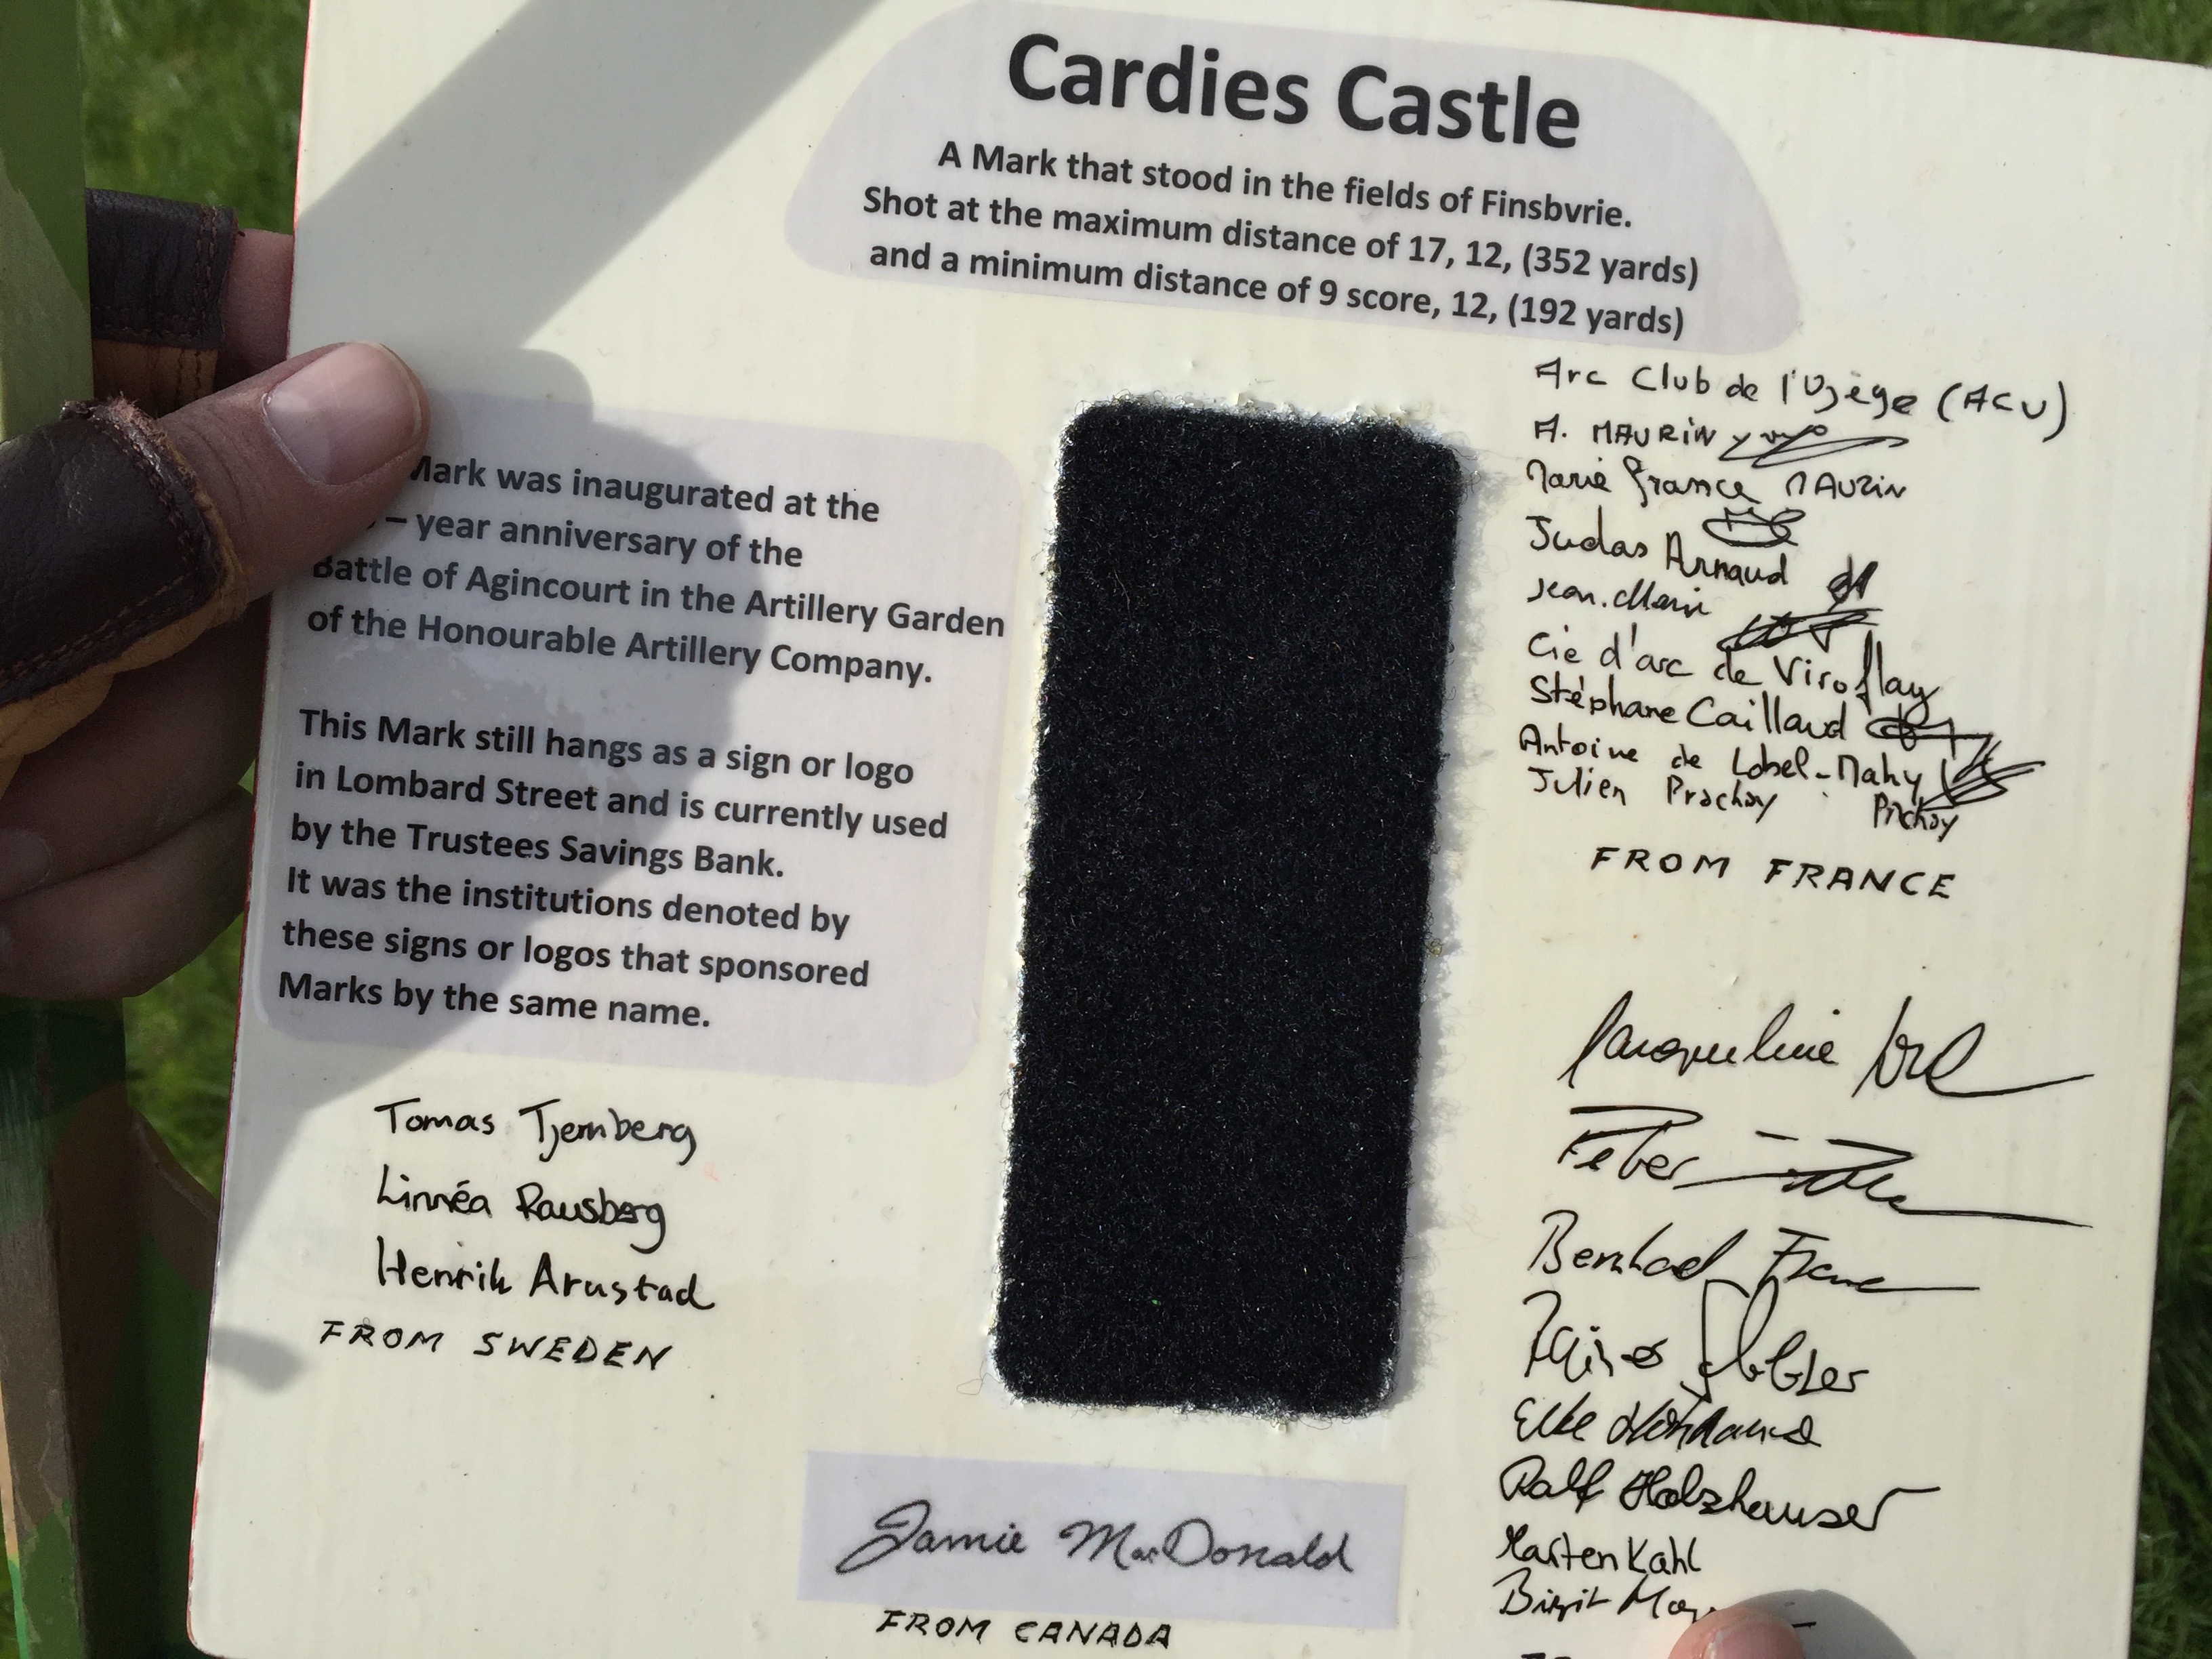 Cardies Castle
A Mark that stood in the fields of Finsbvrie.
Shot at the maximum distance of 17, 12, (352 yards)
and a minimum distance of 9 score, 12, (192 yards)
Mark was inaugurated at the
– year anniversary of the
Battle of Agincourt in the Artillery Garden
of the Honourable Artillery Company.
This Mark still hangs as a sign or logo
in Lombard Street and is currently used
by the Trustees Savings Bank.
It was the institutions denoted by
these signs or logos that sponsored
Marks by the same name.
Tomas Tjernberg
Linnéa Rausberg
Henrik Arustad
FROM SWEDEN
Jamie MacDonald
FROM CANADA
Arc Club de l'Uzège (ACU)
A. MAURIN
Marie France MAURIN
Judas Arnaud
Jean.Marie
Cie d'arc de Viroflay
Stéphane Caillaud
Antoine de Lobel-Mahy
Julien Prachay
FROM FRANCE
Jacqueline
Peter
Elke
Ralf Holzhauser
Marten Kahl
Birgit